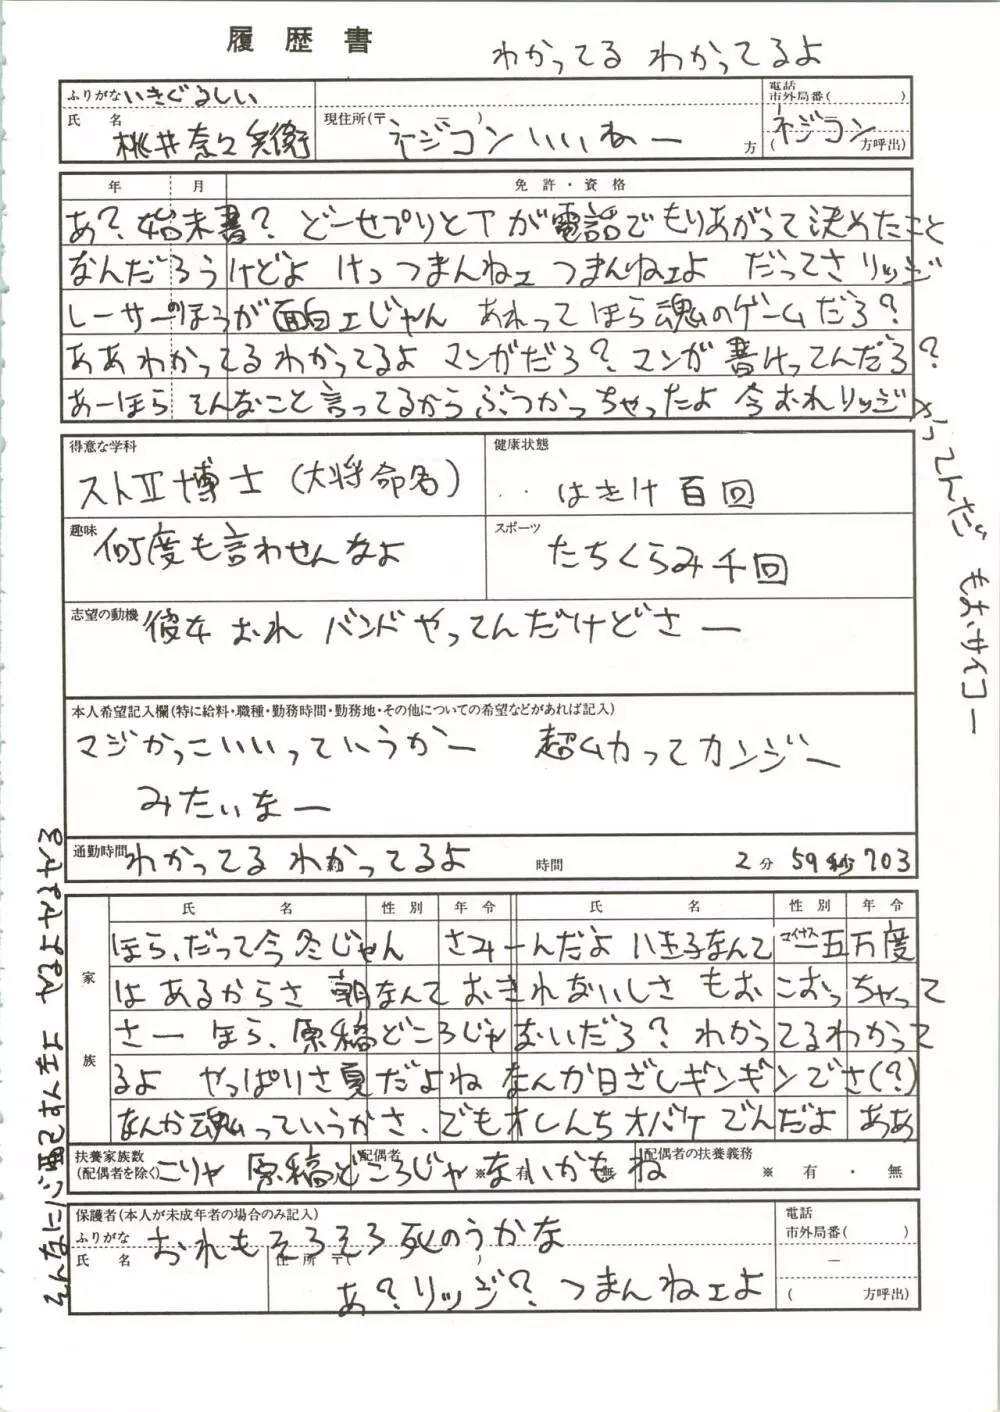 履歴書
わかってる わかってるよ
ふりがな いきぐるしい
氏名 桃井奈々兵衛
現住所(〒 ー )
ネジコン いいねー 方
電話
市外局番( )
ネジコン
( 方呼出)
年 月 免許・資格
あ?始末書? どーせプりとTが電話でもりあがって決めたこと
なんだろうけどよ けっつまんねェ つまんねェよ だってさ リッジ
レーサーのほうが面白ェじゃん あれってほら魂のゲームだろ?
ああわかってるわかってるよ マンガだろ?マンガ書けってんだろ?
あーほら そんなこと言ってるからぶつかっちゃったよ 今おれリッジ
やってんだ もおサイコー
得意な学科
ストⅡ博士(大将命名)
健康状態
‥はきけ百回
趣味
何度も言わせんなよ
スポーツ
たちくらみ千回
志望の動機
彼女 おれ バンドやってんだけどさー
本人希望記入欄(特に給料・職種・勤務時間・勤務地・その他についての希望などがあれば記入)
マジかっこいいっていうかー 超ムカってカンジー
みたいなー
通勤時間 わかってる わかってるよ 時間 2分 59秒703
家族
氏名 性別 年令 氏名 性別 年令
ほら、だって今冬じゃん さみーんだよ 八王子なんて マイナス一五万度
は あるからさ 朝なんて おきれないしさ もお こおっちゃって
さー ほら、原稿どころじゃないだろ? わかってるわかって
るよ やっぱりさ夏だよね なんか日ざしギンギンでさ(?)
なんか魂っていうかさ、でもオレんちオバケでんだよ ああ
扶養家族数
(配偶者を除く)
配偶者
※ 有・無
配偶者の扶養義務
※ 有・無
こりゃ 原稿どころじゃないかもね
保護者(本人が未成年者の場合のみ記入)
ふりがな おれもそろそろ死のうかな
氏名 住所 〒( )
あ?リッジ? つまんねェよ
電話
市外局番( )
ー
( 方呼出)
そんなに心配すんなよ やるよやるやる